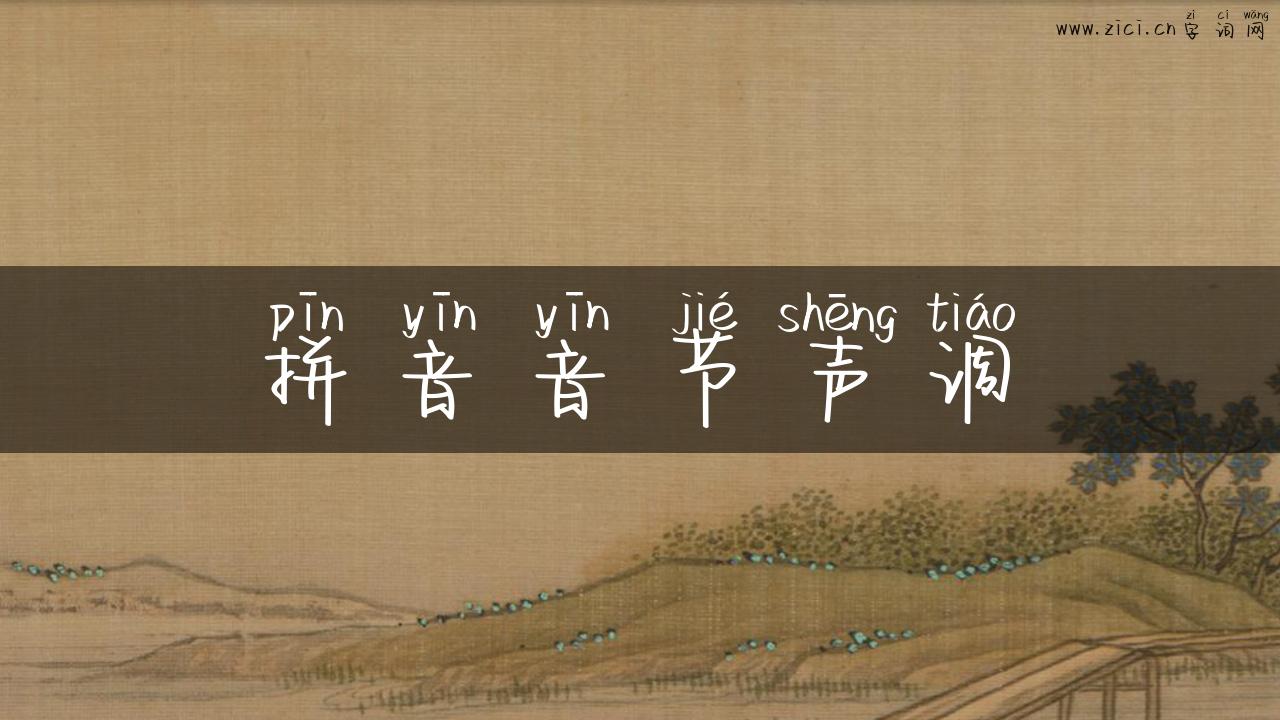 zì cí wǎng
www.zici.cn字词网
pīn yīn yīn jié shēng tiáo
拼音音节声调